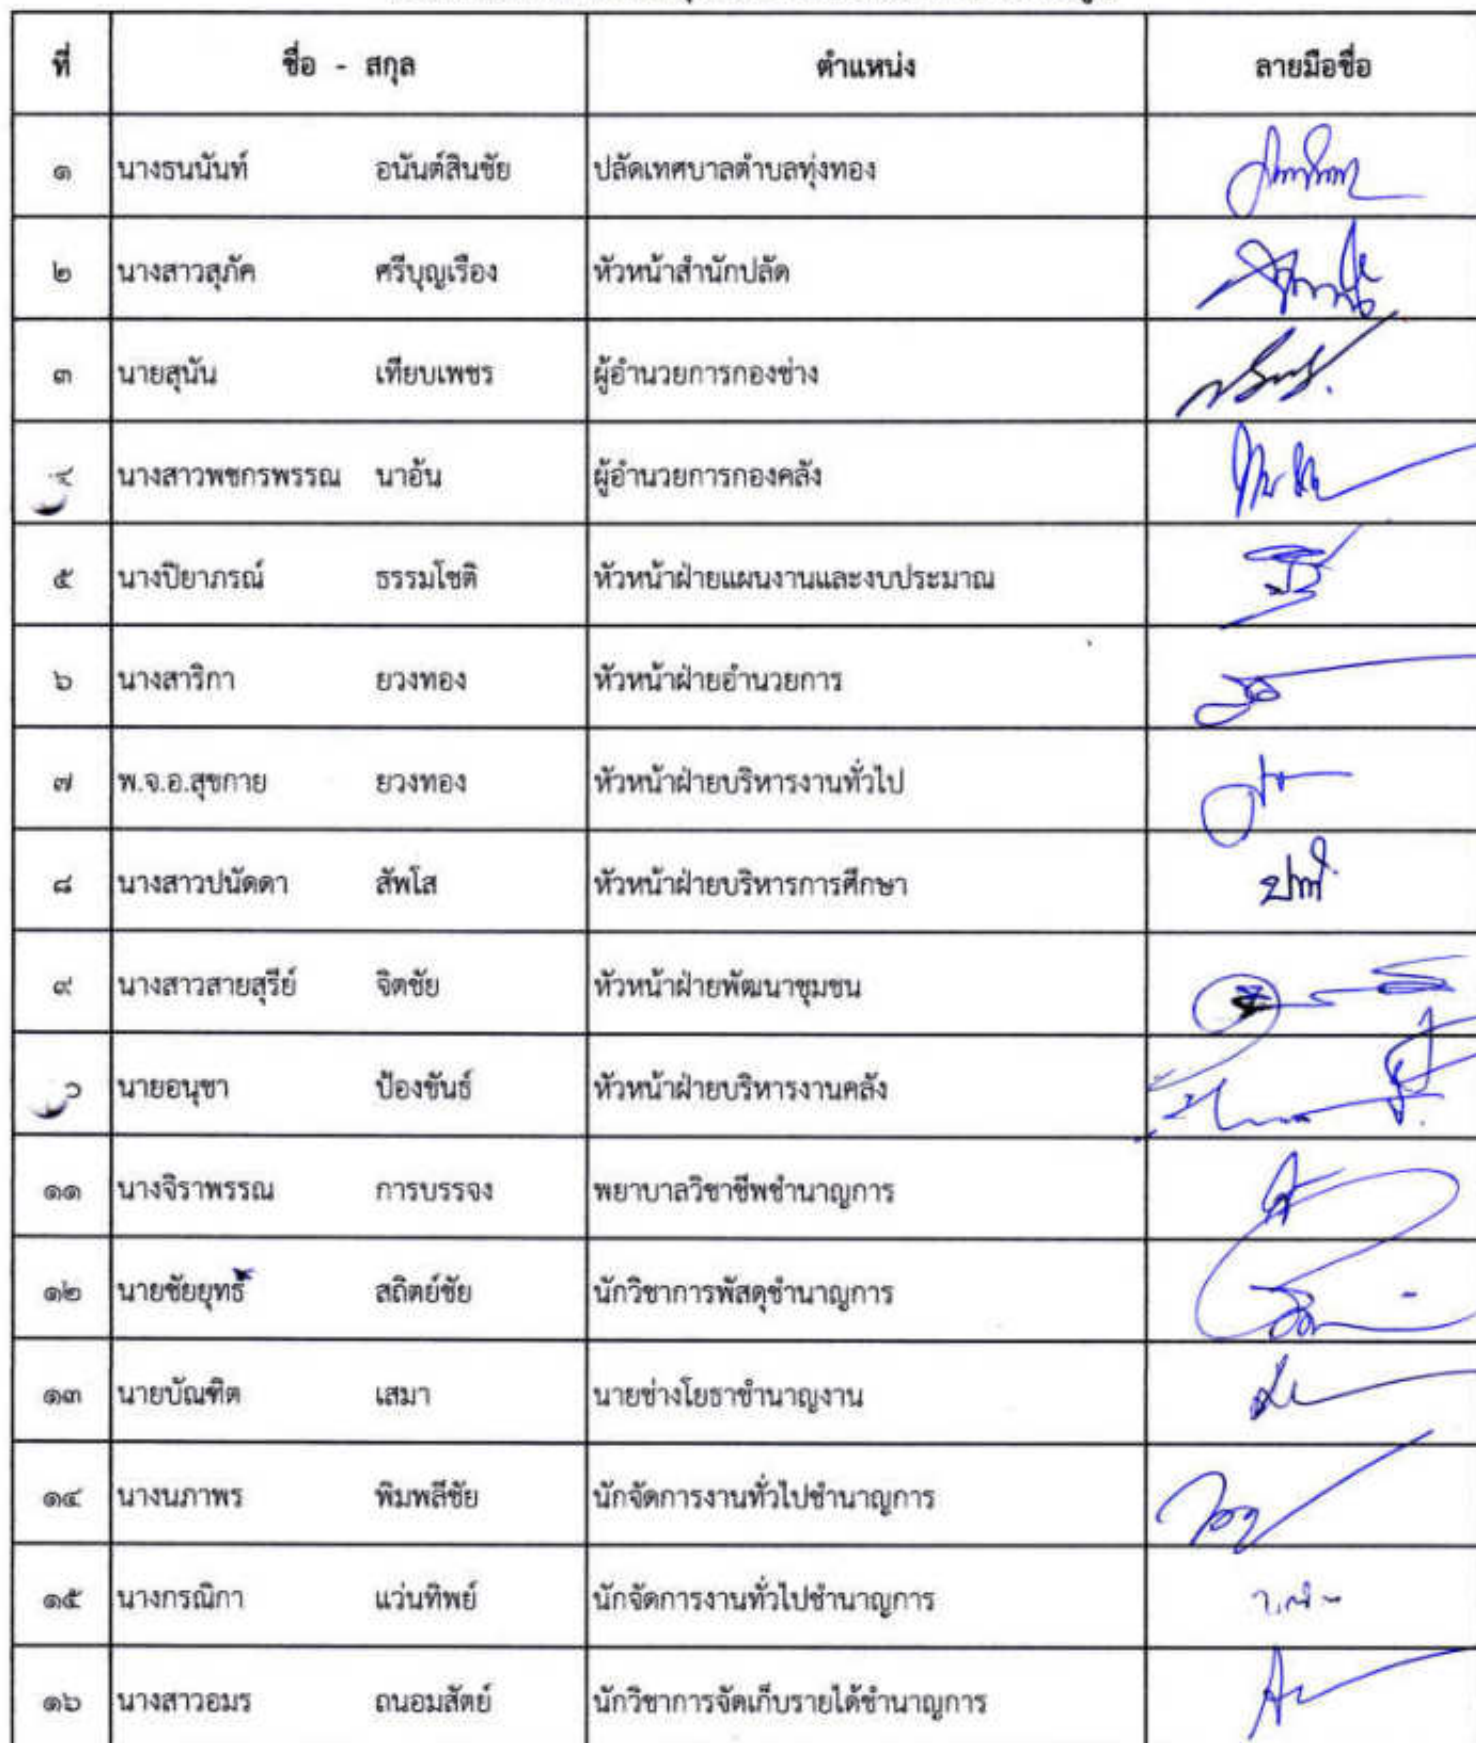 ที่ ชื่อ - สกุล ตำแหน่ง ลายมือชื่อ
๑ นางธนนันท์ อนันต์สินชัย ปลัดเทศบาลตำบลทุ่งทอง
๒ นางสาวสุภัค ศรีบุญเรือง หัวหน้าสำนักปลัด
๓ นายสุนัน เทียบเพชร ผู้อำนวยการกองช่าง
๔ นางสาวพชกรพรรณ นาอ้น ผู้อำนวยการกองคลัง
๕ นางปิยาภรณ์ ธรรมโชติ หัวหน้าฝ่ายแผนงานและงบประมาณ
๖ นางสาริกา ยวงทอง หัวหน้าฝ่ายอำนวยการ
๗ พ.จ.อ.สุขกาย ยวงทอง หัวหน้าฝ่ายบริหารงานทั่วไป
๘ นางสาวปนัดดา สัพโส หัวหน้าฝ่ายบริหารการศึกษา
๙ นางสาวสายสุรีย์ จิตชัย หัวหน้าฝ่ายพัฒนาชุมชน
นายอนุชา ป้องขันธ์ หัวหน้าฝ่ายบริหารงานคลัง
๑๑ นางจิราพรรณ การบรรจง พยาบาลวิชาชีพชำนาญการ
๑๒ นายชัยยุทธ์ สถิตย์ชัย นักวิชาการพัสดุชำนาญการ
๑๓ นายบัณฑิต เสมา นายช่างโยธาชำนาญงาน
๑๔ นางนภาพร พิมพลีชัย นักจัดการงานทั่วไปชำนาญการ
๑๕ นางกรณิกา แว่นทิพย์ นักจัดการงานทั่วไปชำนาญการ
๑๖ นางสาวอมร ถนอมสัตย์ นักวิชาการจัดเก็บรายได้ชำนาญการ